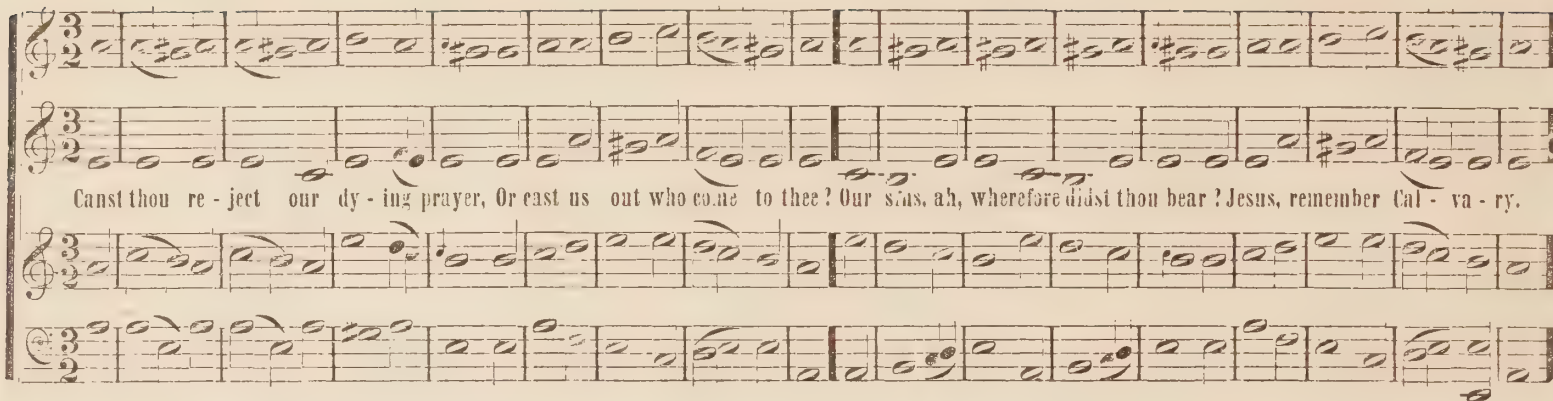 3
2
3
2
Canst thou re - ject our dy - ing prayer, Or cast us out who come to thee? Our sins, ah, wherefore didst thou bear? Jesus, remember Cal - va - ry.
3
2
3
2